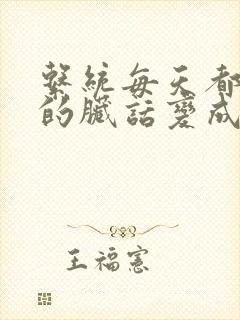 繫統每天都
的臟話變成
王福憲